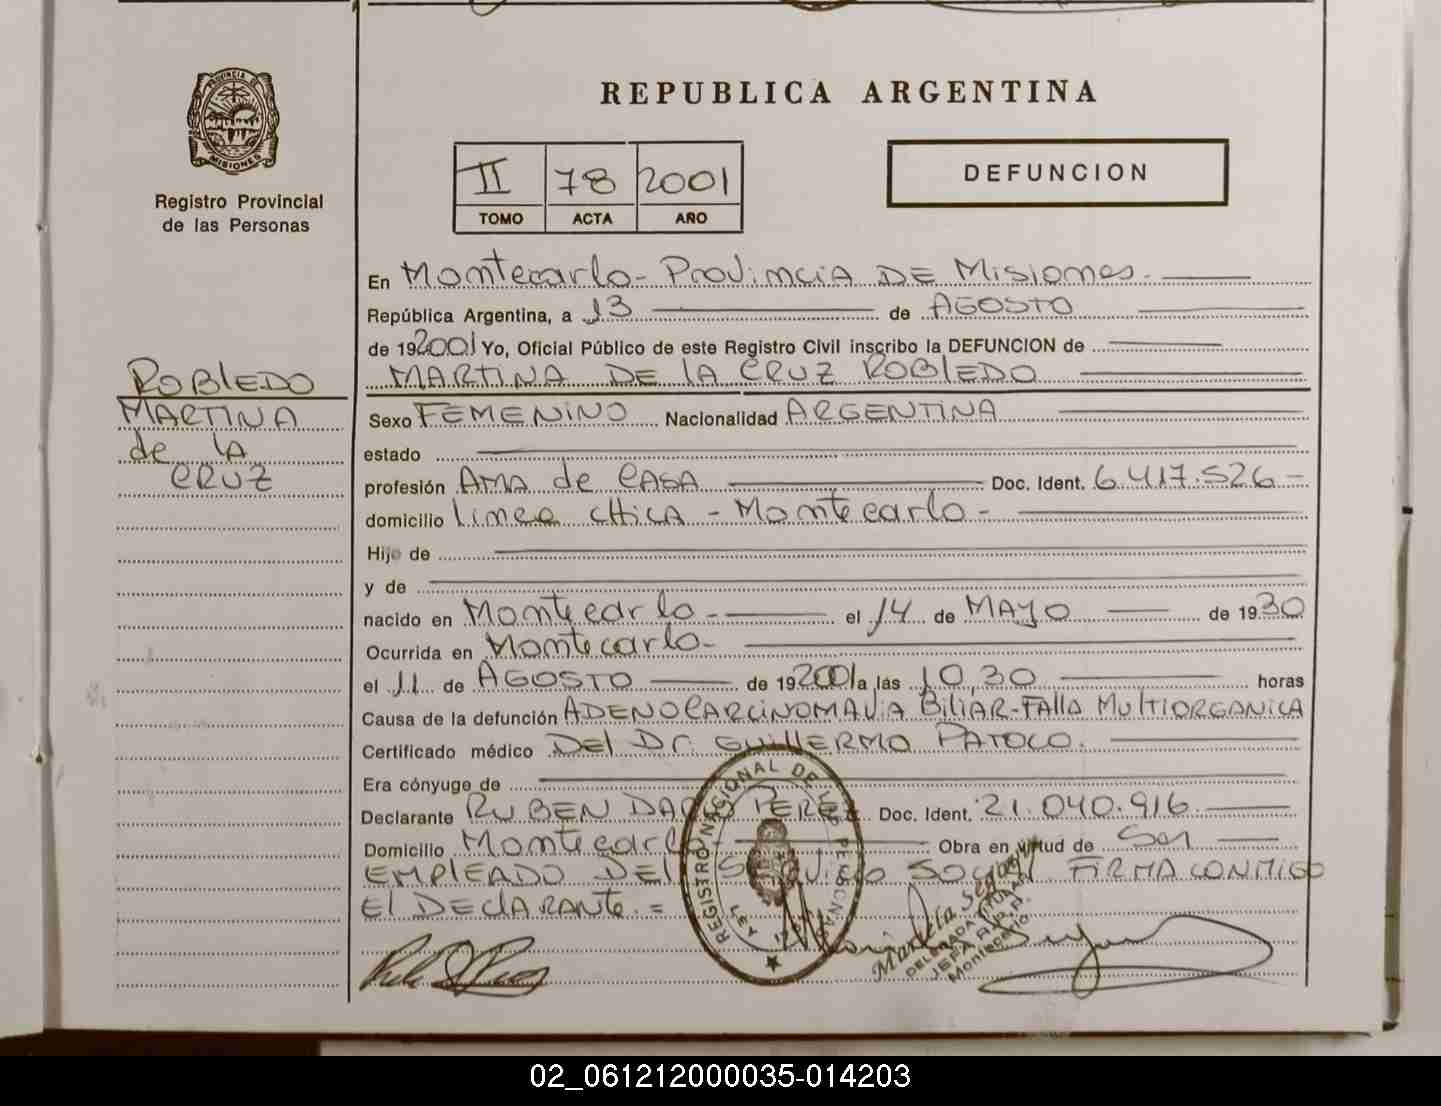 PROVINCIA DE
MISIONES
Registro Provincial
de las Personas
REPUBLICA ARGENTINA
II 78 2001
TOMO ACTA AÑO
DEFUNCION
En Montecarlo - Provincia DE Misiones.
República Argentina, a 13 de AGOSTO
de 192001 Yo, Oficial Público de este Registro Civil inscribo la DEFUNCION de
MARTINA DE LA CRUZ ROBLEDO
ROBLEDO
MARTINA
de LA
CRUZ
Sexo FEMENINO Nacionalidad ARGENTINA
estado
profesión AMA de CASA Doc. Ident. 6.417.526 -
domicilio Linea CHICA - Montecarlo -
Hijo de
y de
nacido en Montecarlo - el 14 de MAYO de 1930
Ocurrida en Montecarlo -
el 11 de AGOSTO de 192001 a las 10,30 horas
Causa de la defunción ADENOCARCINOMA VIA BILIAR - FALLA MULTIORGANICA
Certificado médico Del Dr. GUILLERMO PATOCO.
Era cónyuge de
Declarante RUBEN DARIO PEREZ Doc. Ident. 21.040.916
Domicilio Montecarlo Obra en virtud de Ser
EMPLEADO DEL SERVICIO SOCIAL FIRMA CONMIGO
El DECLARANTE. =
REGISTRO NACIONAL DE LAS PERSONAS
DELEGADA TITULAR
JEFA R.P.P.
Montecarlo
02_061212000035-014203